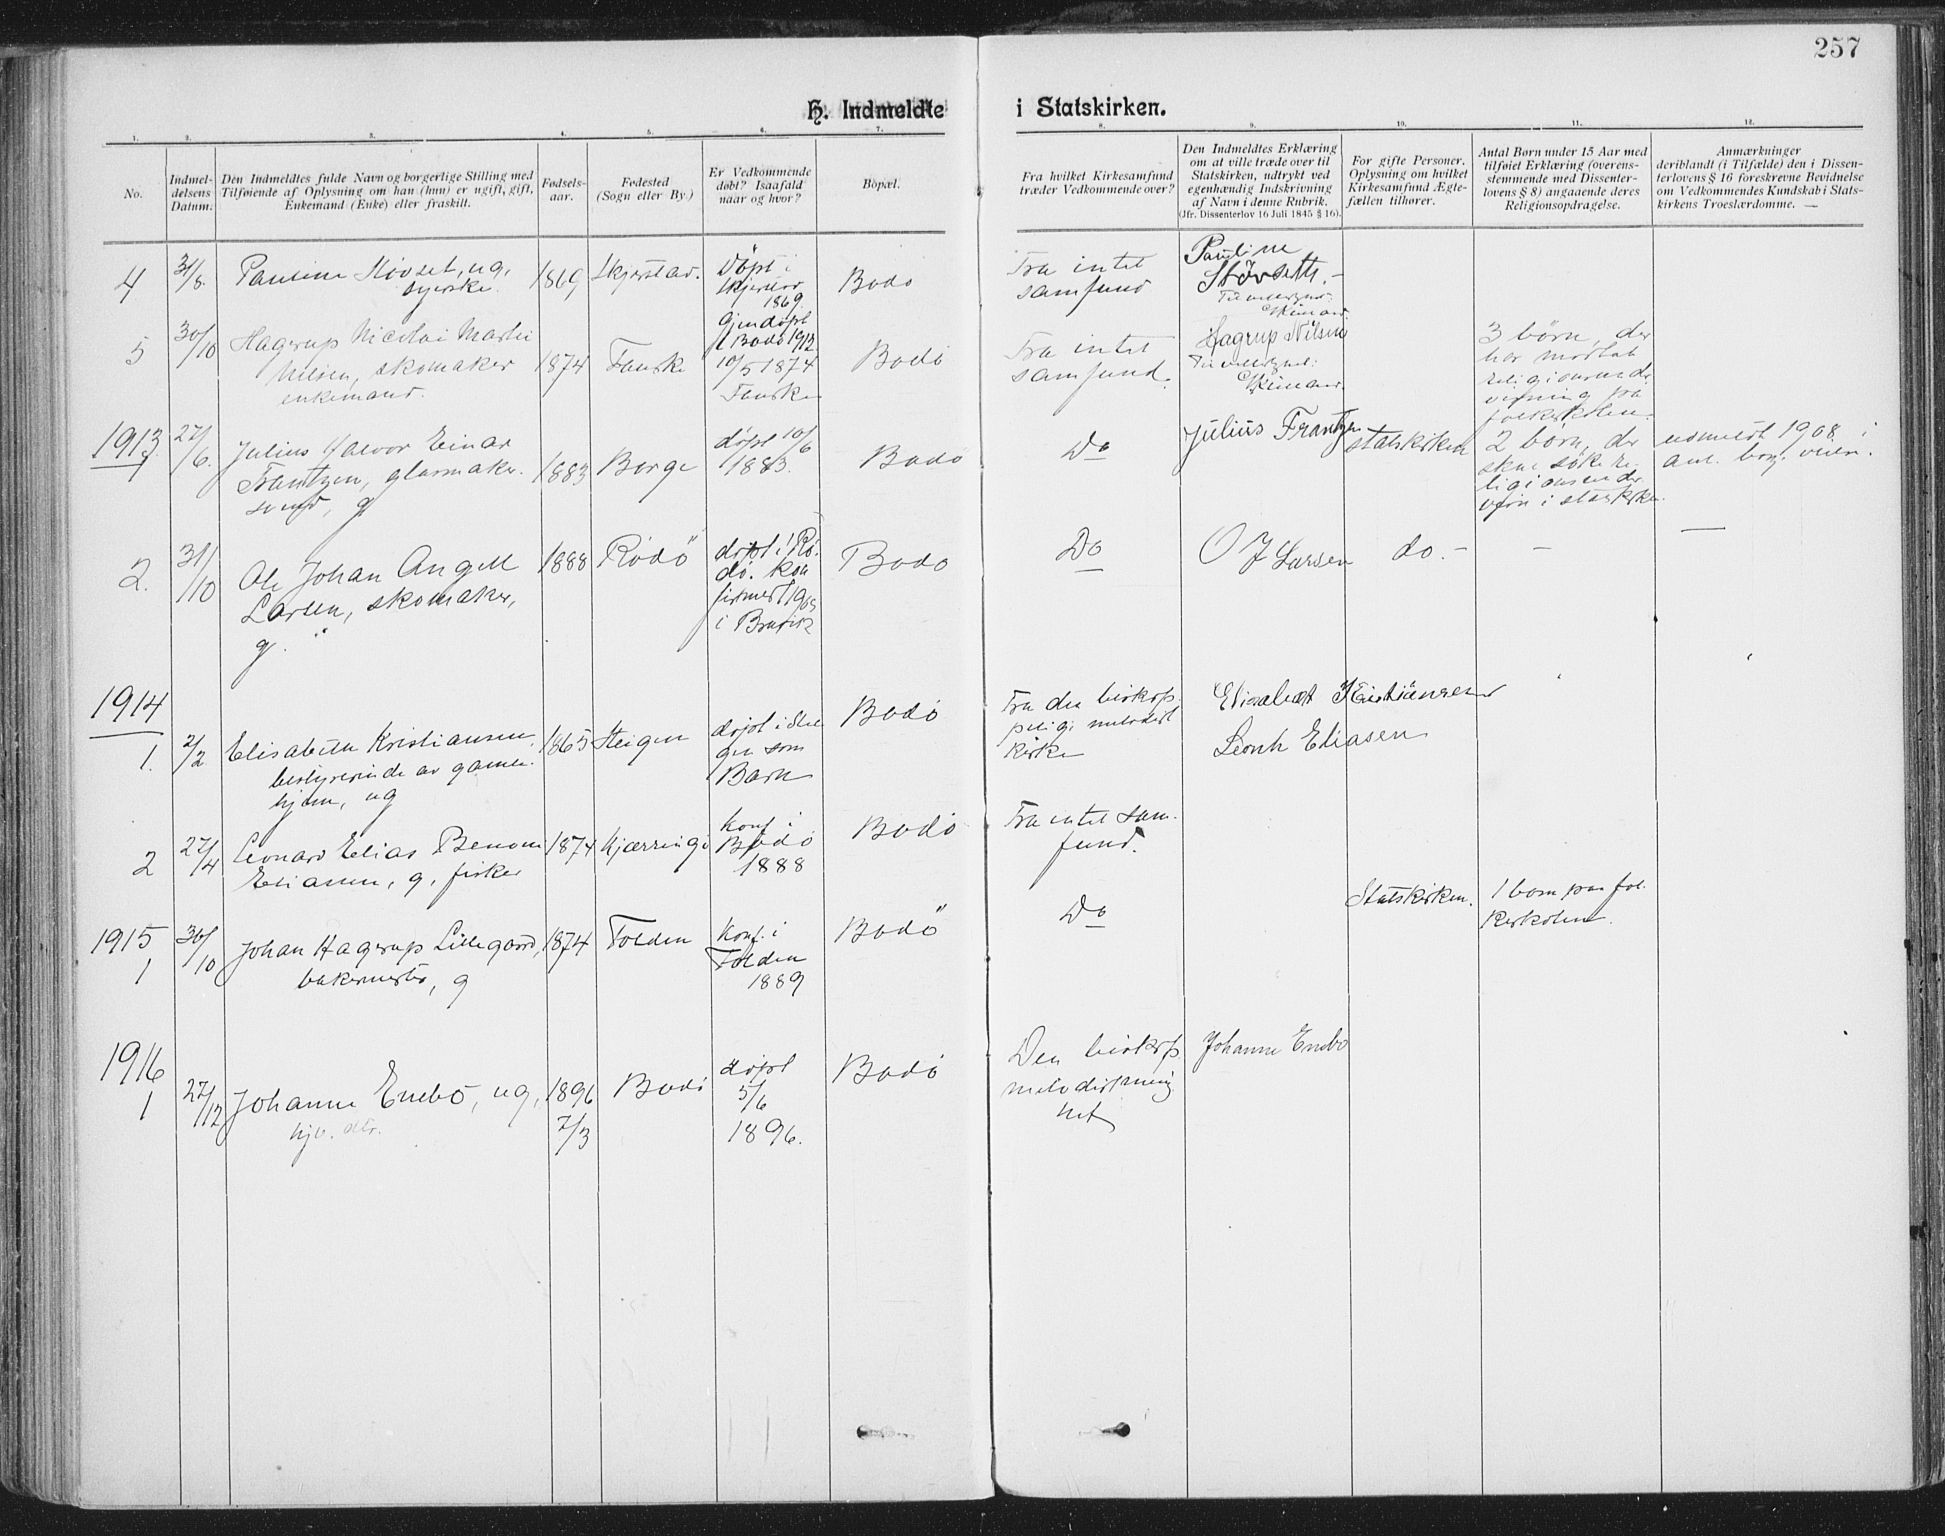 257
H. Indmeldte i Statskirken.
1. 2. 3. 4. 5. 6. 7. 8. 9. 10. 11. 12.
No.
Indmel-
delsens
Datum.
Den Indmeldtes fulde Navn og borgerlige Stilling med
Tilføiende af Oplysning om han (hun) er ugift, gift,
Enkemand (Enke) eller fraskilt.
Fødsels-
aar.
Fødested
(Sogn eller By.)
Er Vedkommende
døbt? Isaafald
naar og hvor?
Bopæl.
Fra hvilket Kirkesamfund
træder Vedkommende over?
Den Indmeldtes Erklæring
om at ville træde over til
Statskirken, udtrykt ved
egenhændig Indskrivning
af Navn i denne Rubrik.
(Jfr. Dissenterlov 16 Juli 1845 § 16).
For gifte Personer.
Oplysning om hvilket
Kirkesamfund Ægte-
fællen tilhører.
Antal Børn under 15 Aar med
tilføiet Erklæring (overens-
stemmende med Dissenter-
lovens § 8) angaaende deres
Religionsopdragelse.
Anmærkninger
deriblandt (i Tilfælde) den i Dissen-
terlovens § 16 foreskrevne Bevidnelse
om Vedkommendes Kundskab i Stats-
kirkens Troeslærdomme. —
4
31/8.
Pauline Støvset, ug,
syerske.
1869
Skjerstad.
Døpt i
Skjerstad
1869.
Gjendöpt
i Bodö 1912
Bodø
Fra intet
samfund
Pauline
Støvseth.-
5
30/10
Hagerup Nicolai Martin
Nilsen, skomaker
enkemand.
1874
Fauske
10/5 1874
Fauske
Bodö
Fra intet
samfund.
Hagrup Nilsen
3 börn, der
har mottat
religionsunder
visning paa
folkeskolen.
1913
1
27/6.
Julius Halvor Einar
Frantzen, glasmaker
svend, g
1883
Borge
döpt 10/6
1883.
Bodö
Do
Julius Frantzen
Statskirken
2 börn, der
skal søke re-
ligionsunder
visn i statskirken.
utmeldt 1908 i
2.
31/10
Ole Johan Angell
Larsen, skomaker,
g.
1888
Rödö
döpt i Rö-
dö. kon
firmert 1903
i Bratvik
Bodø
Do
O J Larsen
do.-
-
—
1914
1.
2/2
Elisabeth Kristiansen
bestyrerinde av gamle-
hjem, ug
1865
Steigen
döpt i Stei
gen som
Barn
Bodö
Fra den biskop-
pelige metodist
kirke
Elisabeth Kristiansen
2
27/4
Leonard Elias Benoni
Eliassen, g, fisker
1874
Kjærringö
Konf. i
Bodö
1888
Bodö
Fra intet sam-
fund.
Leonh Eliasen
1915
1
30/10
Johan Hagerup Lillegaard,
bakermester, g
1874
Folden
Konf. i
Folden
1889
Bodö
Do
Statskirken.
1 barn paa fol-
keskolen.
1916
1
27/12
Johanne Enebö, ug,
hjv. dtr.
1896
7/3
Bodö
döpt
5/6
1896.
Bodö
Den biskop.
metodistmenig
het
Johanne Enebö